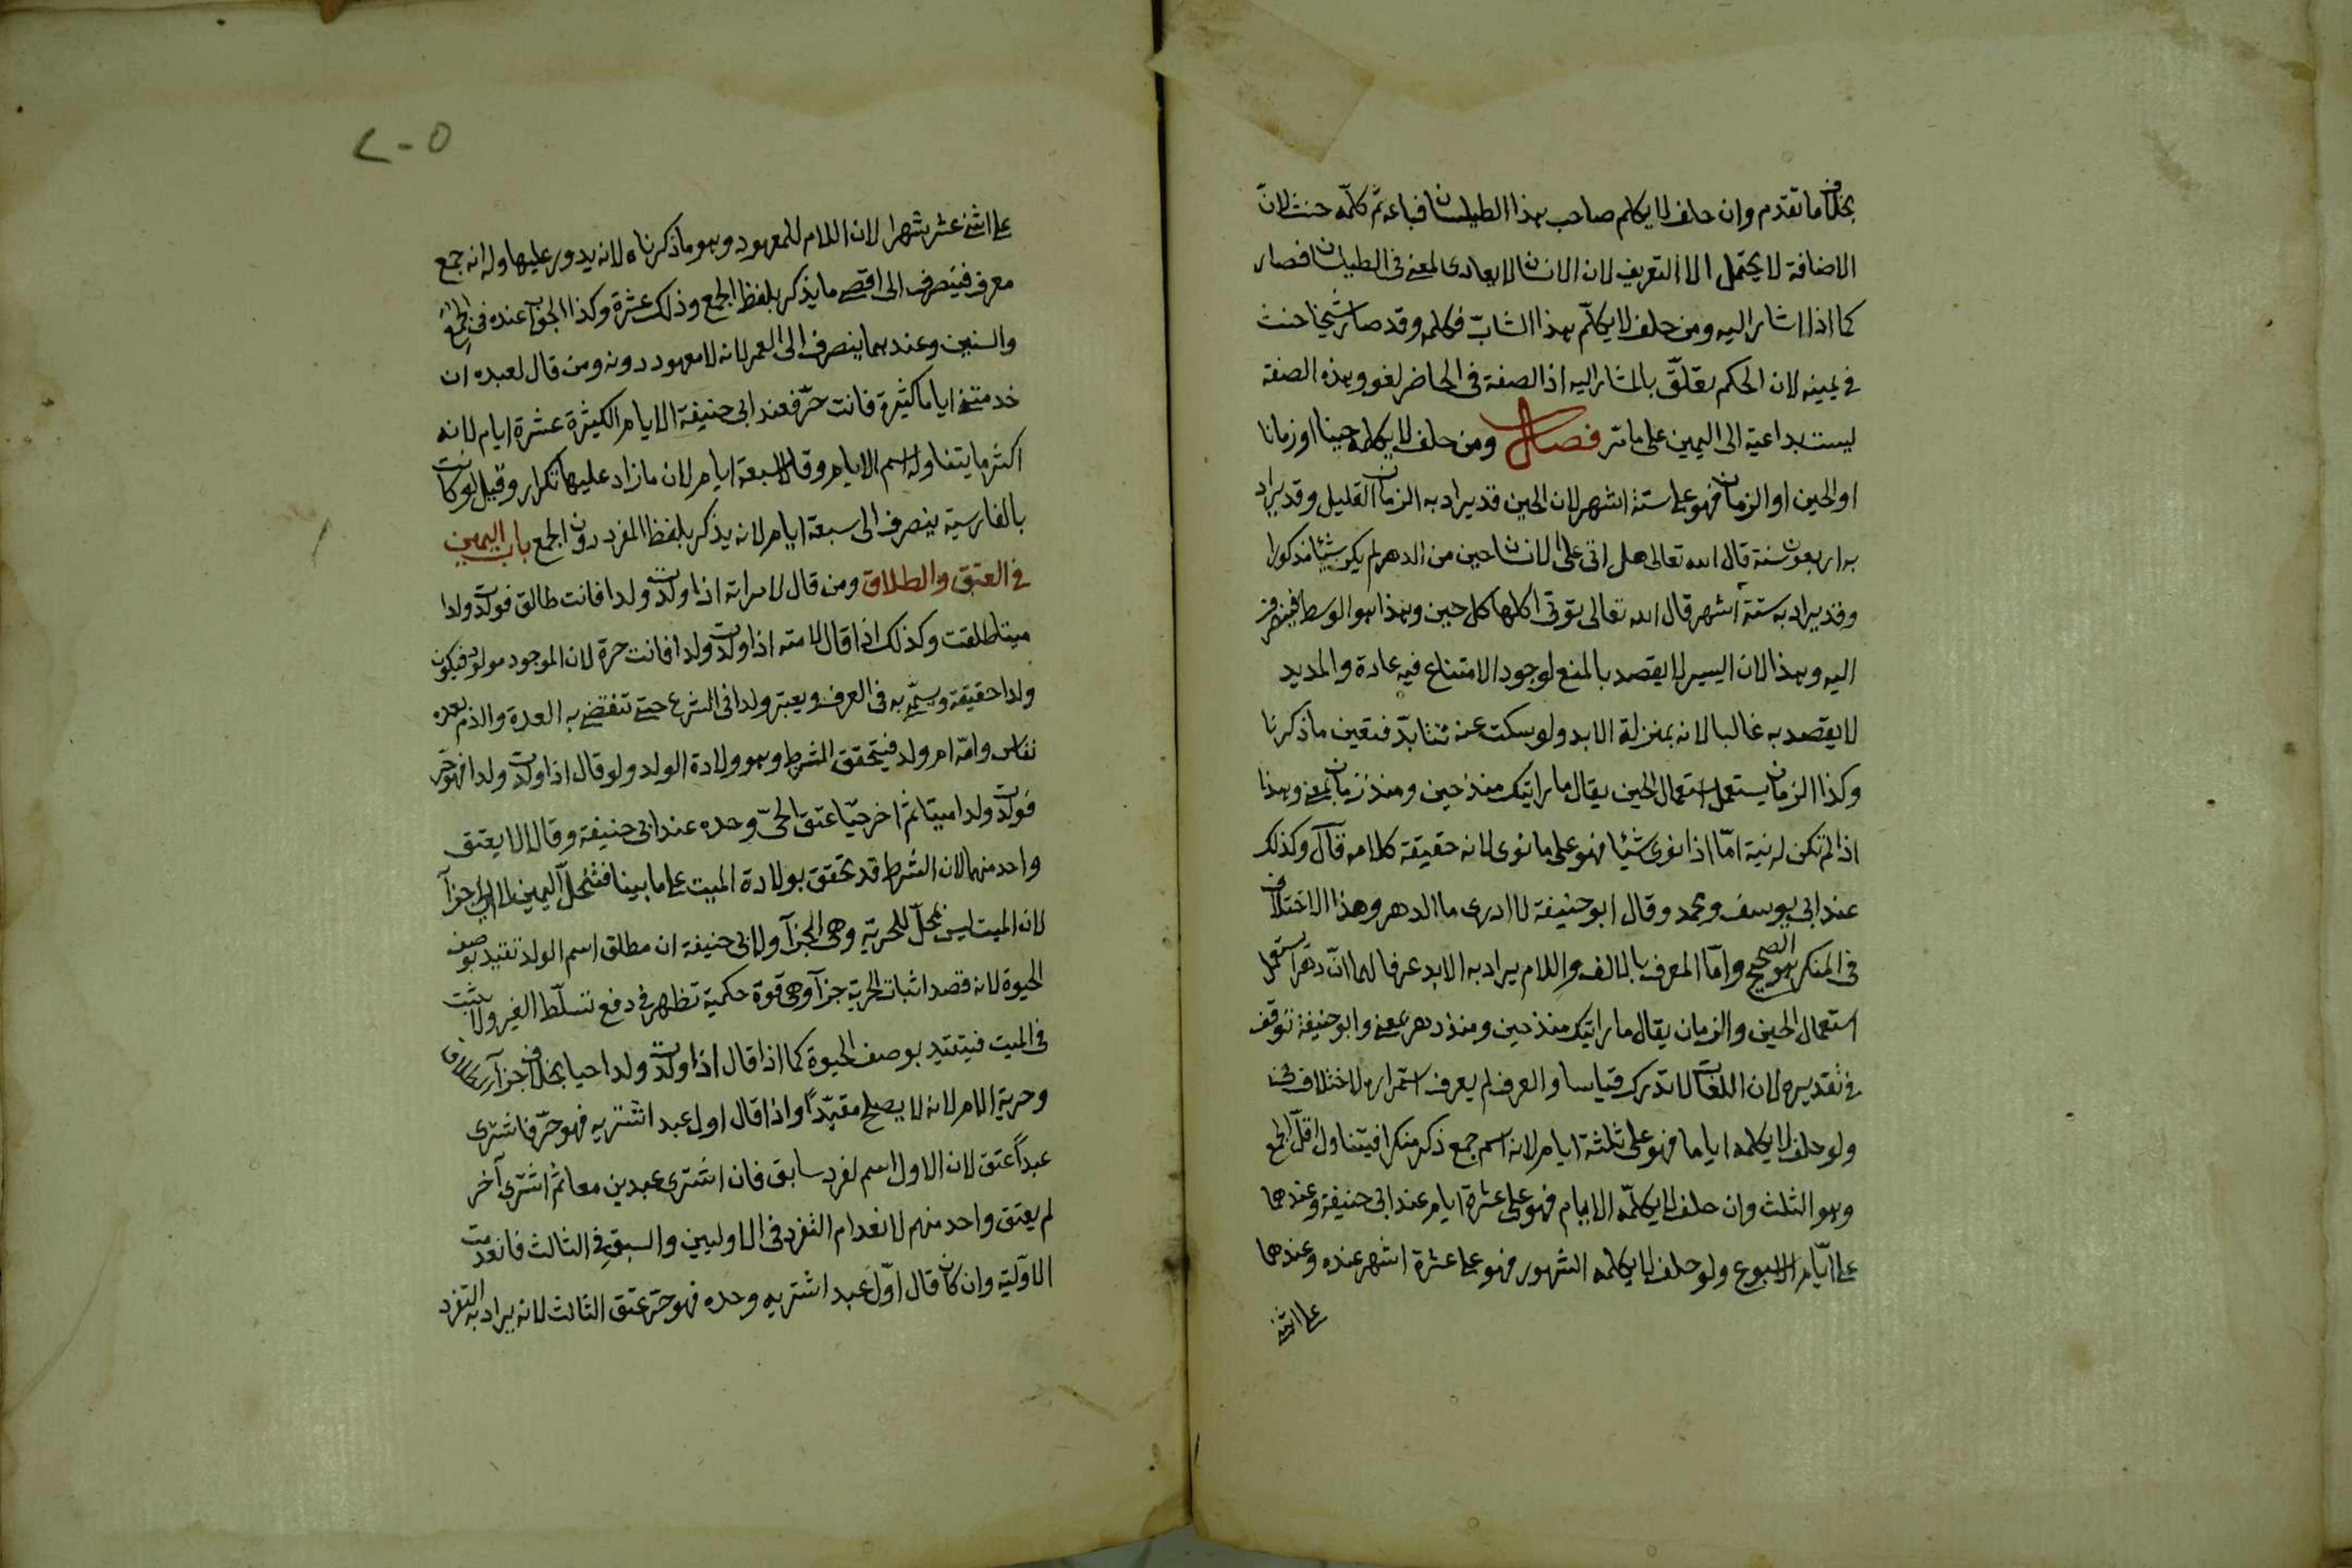 بخلاف ما تقدم وان حلف لا يكلم صاحب هذا الطيلسان فباعه ثم كلّمه حنث لانّ
الاضافة لا يحتمل الا التعريف لان الانسان لا يعادى لمعنى فى الطيلسان فصار
كما اذا اشار اليه ومن حلف لا يكلّم هذا الشابّ فكلمه وقد صار شيخا حنث
فى يمينه لان الحكم تعلّق بالمشار اليه اذ الصفة فى الحاضر لغو وهذه الصفة
ليست بداعية الى اليمين على ما مر فصل ومن حلف لا يكلمه حينا او زمانا
او الحين او الزمان فهو على ستة اشهر لان الحين قد يراد به الزمان القليل وقد يراد
به اربعون سنة قال الله تعالى هل اتى على الانسان حين من الدهر لم يكن شيئا مذكورا
وقد يراد به ستة اشهر قال الله تعالى تؤتى اكلها كل حين وهذا هو الوسط فينصرف
اليه وهذا لان اليسير لا يقصد بالمنع لوجود الامتناع فيه عادة والمديد
لا يقصد به غالبا لانه بمنزلة الابد ولو سكت عنه تتابدّ فتعين ما ذكرنا
وكذا الزمان يستعمل استعمال الحين يقال ما رايتك منذ حين ومنذ زمان بمعنى وهذا
اذا لم تكن له نية امّا اذا نوى شيئا فهو على ما نوى لانه حقيقة كلامه قال وكذلك
عند ابى يوسف ومحمد وقال ابو حنيفة لا ادرى ما الدهر وهذا الاختلاف
فى المنكر هو الصحيح وامّا المعرف بالالف واللام يراد به الابد عرفا لهما انّ دهرا يستعمل
استعمال الحين والزمان يقال ما رايتك منذ حين ومنذ دهر بمعنى وابو حنيفة توقف
فى تقديره لان اللغات لا تدرك قياسا والعرف لم يعرف استمراره لاختلاف فى
ولو حلف لا يكلمه اياما فهو على ثلثة ايام لانه اسم جمع ذكر منكرا فيتناول اقلّ الجمع
وهو الثلث وان حلف لا يكلّمه الايام فهو على عشرة ايام عند ابى حنيفة وعندهما
على ايّام الاسبوع ولو حلف لا يكلمه الشهور فهو على عشرة اشهر عنده وعندهما
على اثنى
٢٠٥
على اثنى عشر شهرا لان اللام للمعهود وهو ما ذكرناه لانه يدور عليها وله انه جمع
معرف فينصرف الى اقصى ما يذكر بلفظ الجمع وذلك عشرة وكذا الجواب عنده فى الجمع
والسنين وعندهما ينصرف الى العمر لانه لا معهود دونه ومن قال لعبده ان
خدمتنى اياما كثيرة فانت حرّ فعند ابى حنيفة الايام الكثيرة عشرة ايام لانه
اكثر ما يتناوله اسم الايام وقالا سبعة ايام لان ما زاد عليها تكرار وقيل لو كانت
بالفارسية ينصرف الى سبعة ايام لانه يذكر بلفظ المفرد دون الجمع باب اليمين
فى العتق والطلاق ومن قال لامراته اذا ولدت ولدا فانت طالق فولدت ولدا
ميتا طلقت وكذلك اذا قال لامته اذا ولدت ولدا فانت حرة لان الموجود مولود فيكون
ولدا حقيقة ويسمّى به فى العرف ويعتبر ولدا فى الشرع حتى تنقضى به العدة والدم بعده
نفاس وامّه ام ولد فيتحقق الشرط وهو ولادة الولد ولو قال اذا ولدت ولدا فهو حر
فولدت ولدا ميتا ثم اخر حيّا عتق الحىّ وحده عند ابى حنيفة وقالا لا يعتق
واحد منهما لان الشرط قد تحقق بولادة الميت على ما بينا فتنحلّ اليمين لا الى جزآ
لان الميت ليس بمحلّ للحرية وهى الجزآ ولابى حنيفة ان مطلق اسم الولد تقيد بوصف
الحيوة لانه قصد اثبات الحرية جزآ وهى قوة حكمية تظهر فى دفع تسلّط الغير ولا تثبت
فى الميت فيتقيد بوصف الحيوة كما اذا قال اذا ولدت ولدا حيا بخلاف جزآ الطلاق
وحرية الام لانه لا يصلح مقيّداً واذا قال اول عبد اشتريه فهو حرّ فاشترى
عبداً عتق لان الاول اسم لفرد سابق فان اشترى عبدين معا ثم اشترى آخر
لم يعتق واحد منهم لانعدام التفرد فى الاوليين والسبق فى الثالث فانعدمت
الاوّلية وان كان قال اوّل عبد اشتريه وحده فهو حرّ عتق الثالث لانه يراد به التفرد